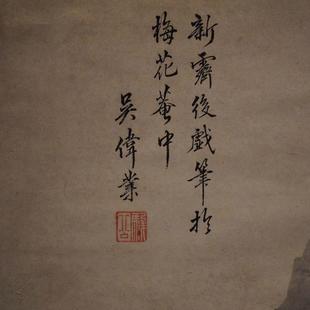 新霽後戲筆於
梅花菴中
吳偉業